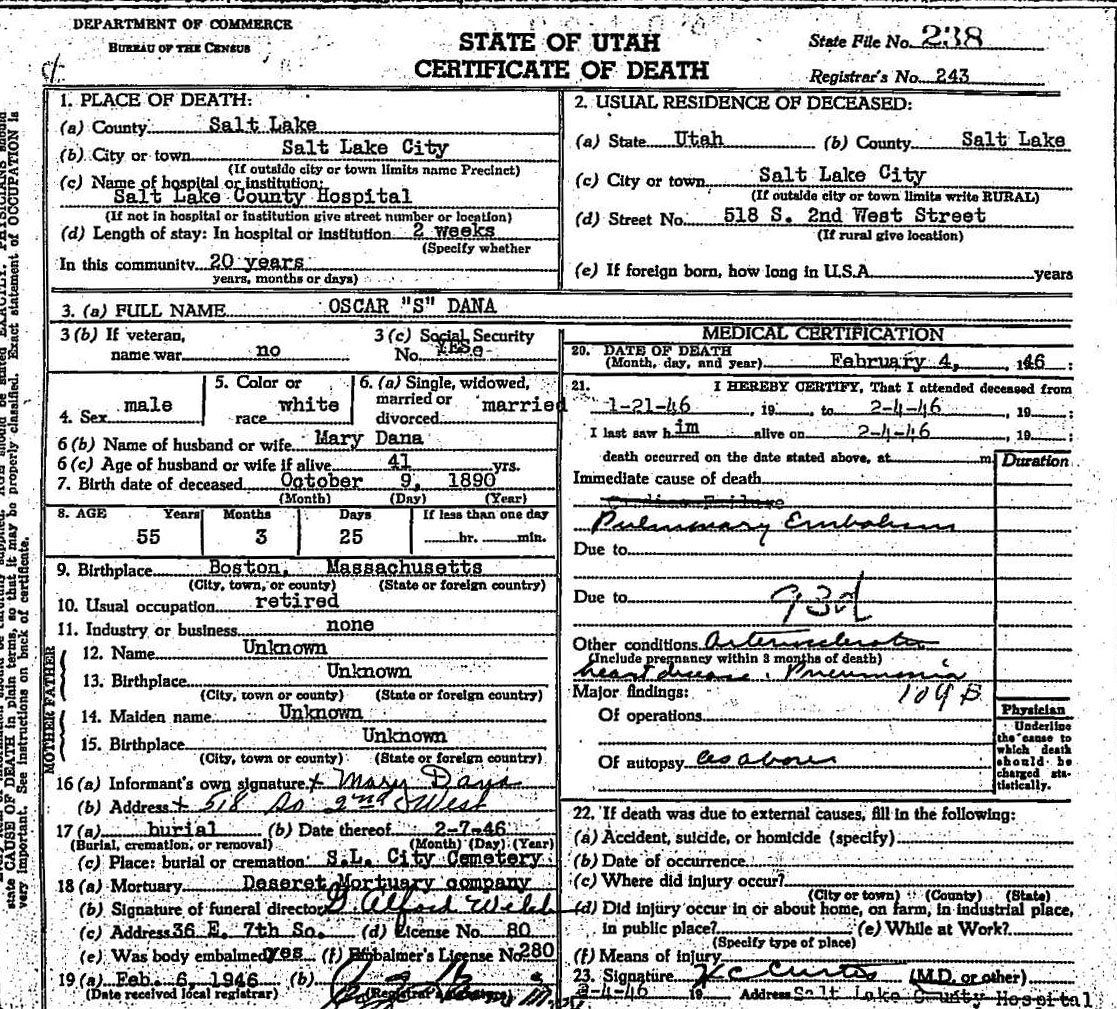 DEPARTMENT OF COMMERCE
BUREAU OF THE CENSUS
STATE OF UTAH
CERTIFICATE OF DEATH
State File No. 238
Registrar's No. 243
1. PLACE OF DEATH:
(a) County Salt Lake
(b) City or town Salt Lake City
(If outside city or town limits name Precinct)
(c) Name of hospital or institution:
Salt Lake County Hospital
(If not in hospital or institution give street number or location)
(d) Length of stay: In hospital or institution 2 weeks
(Specify whether
In this community 20 years
years, months or days)
2. USUAL RESIDENCE OF DECEASED:
(a) State Utah (b) County Salt Lake
(c) City or town Salt Lake City
(If outside city or town limits write RURAL)
(d) Street No. 518 S. 2nd West Street
(If rural give location)
(e) If foreign born, how long in U.S.A. years
3. (a) FULL NAME OSCAR "S" DANA
3 (b) If veteran,
name war no
3 (c) Social Security
No.
4. Sex male
5. Color or
race white
6. (a) Single, widowed,
married or
divorced married
6 (b) Name of husband or wife Mary Dana
6 (c) Age of husband or wife if alive 41 yrs.
7. Birth date of deceased October 9, 1890
(Month) (Day) (Year)
8. AGE Years Months Days If less than one day
55 3 25 hr. min.
9. Birthplace Boston, Massachusetts
(City, town, or county) (State or foreign country)
10. Usual occupation retired
11. Industry or business none
FATHER
12. Name Unknown
13. Birthplace Unknown
(City, town or county) (State or foreign country)
MOTHER
14. Maiden name Unknown
15. Birthplace Unknown
(City, town or county) (State or foreign country)
16 (a) Informant's own signature x Mary Dana
(b) Address x 518 So 2nd West
17 (a) burial (b) Date thereof 2-7-46
(Burial, cremation, or removal) (Month) (Day) (Year)
(c) Place: burial or cremation S.L. City Cemetery
18 (a) Mortuary Deseret Mortuary company
(b) Signature of funeral director
(c) Address 36 E. 7th So. (d) License No. 80
(e) Was body embalmed yes (f) Embalmer's License No 280
19 (a) Feb. 6, 1946 (b)
(Date received local registrar) (Registrar's signature)
MEDICAL CERTIFICATION
20. DATE OF DEATH
(Month, day, and year) February 4, 1946 :
21. I HEREBY CERTIFY, That I attended deceased from
1-21-46, 19 , to 2-4-46, 19 :
I last saw him alive on 2-4-46, 19 :
death occurred on the date stated above, at m.
Duration
Immediate cause of death
Cardiac Failure
Pulmonary Embolism
Due to
Due to
93d
Other conditions Arteriosclerotic
(Include pregnancy within 3 months of death)
heart disease, Pneumonia
109 B
Major findings:
Of operations
Of autopsy as above
Physician
Underline
the cause to
which death
should be
charged sta-
tistically.
22. If death was due to external causes, fill in the following:
(a) Accident, suicide, or homicide (specify)
(b) Date of occurrence
(c) Where did injury occur?
(City or town) (County) (State)
(d) Did injury occur in or about home, on farm, in industrial place,
in public place? (e) While at Work?
(Specify type of place)
(f) Means of injury
23. Signature Curtis (M.D. or other)
2-4-46 19 Address Salt Lake County Hospital
state CAUSE OF DEATH in plain terms, so that it may be properly classified. Exact statement of OCCUPATION is
very important. See instructions on back of certificate.